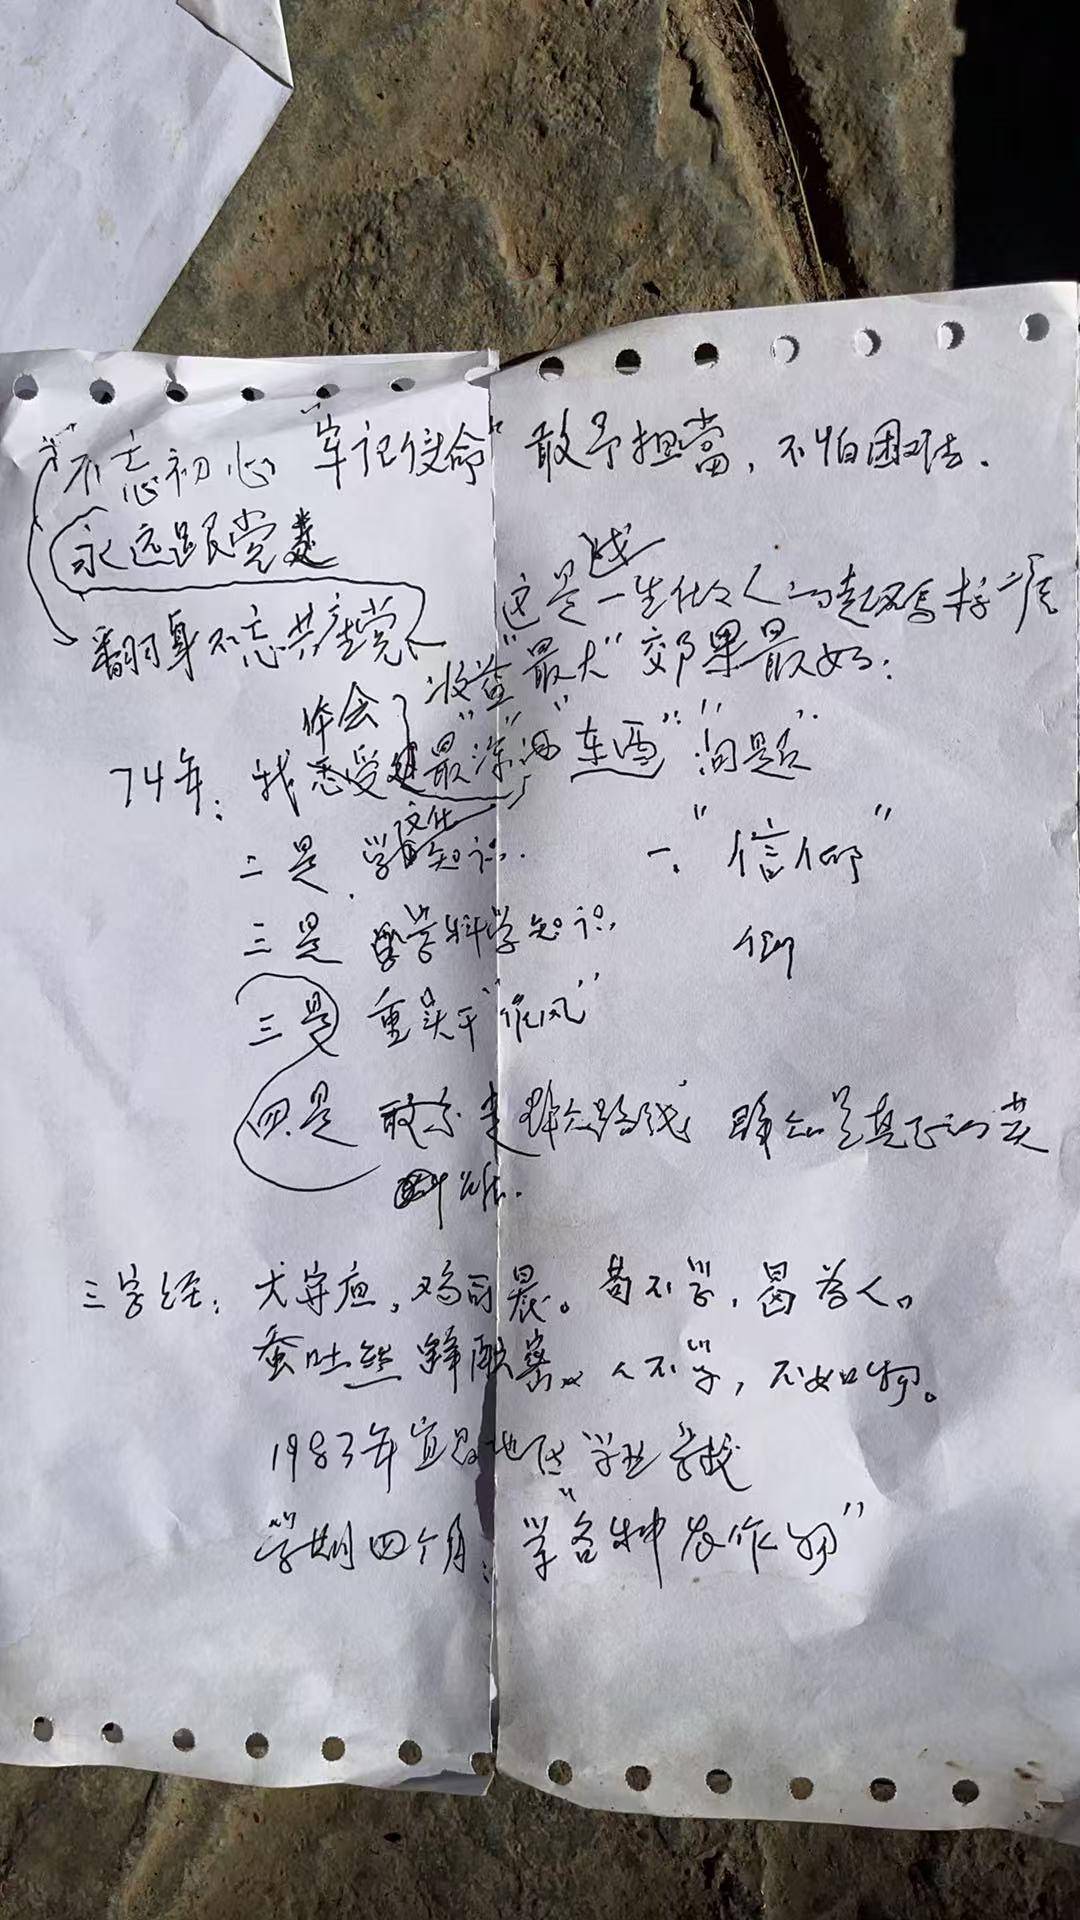 "不忘初心 "牢记使命" 敢于担當，不怕困难．
永远跟党走
我
这是一生任何人
翻身不忘共产党人
收益"最大" 效果最好：
体会
74年： 我 受 最"深" 东西" "问题"
文化
二是．学 知识．
一．"信仰"
三是 学科学知识，
仰
三是 重实干"作风"
四．是 敢于走群众路线 群众是真正的英
雄．
三字经：犬守夜，鸡司晨。苟不学，曷为人。
蚕吐丝 蜂酿蜜。人不学，不如物。
1983年宜昌地区 学校
学期四个月：学"各种农作物"